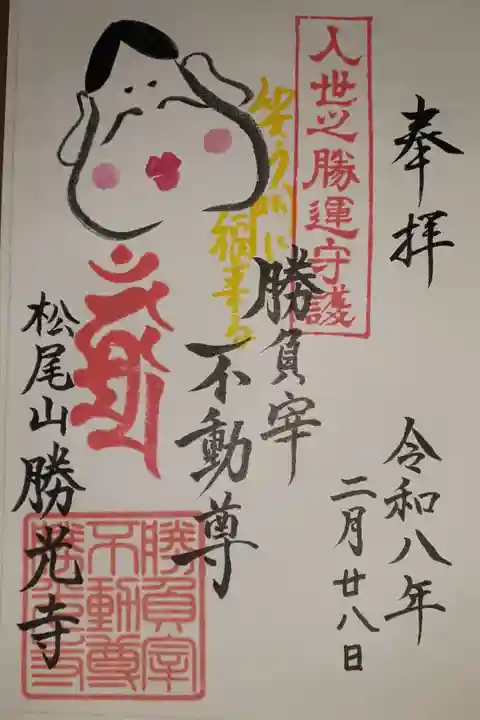 奉拝
令和八年
二月廿八日
人世之勝運守護
勝負宰
不動尊
笑う門に
福来る
松尾山勝光寺
勝負宰
不動尊
勝光寺